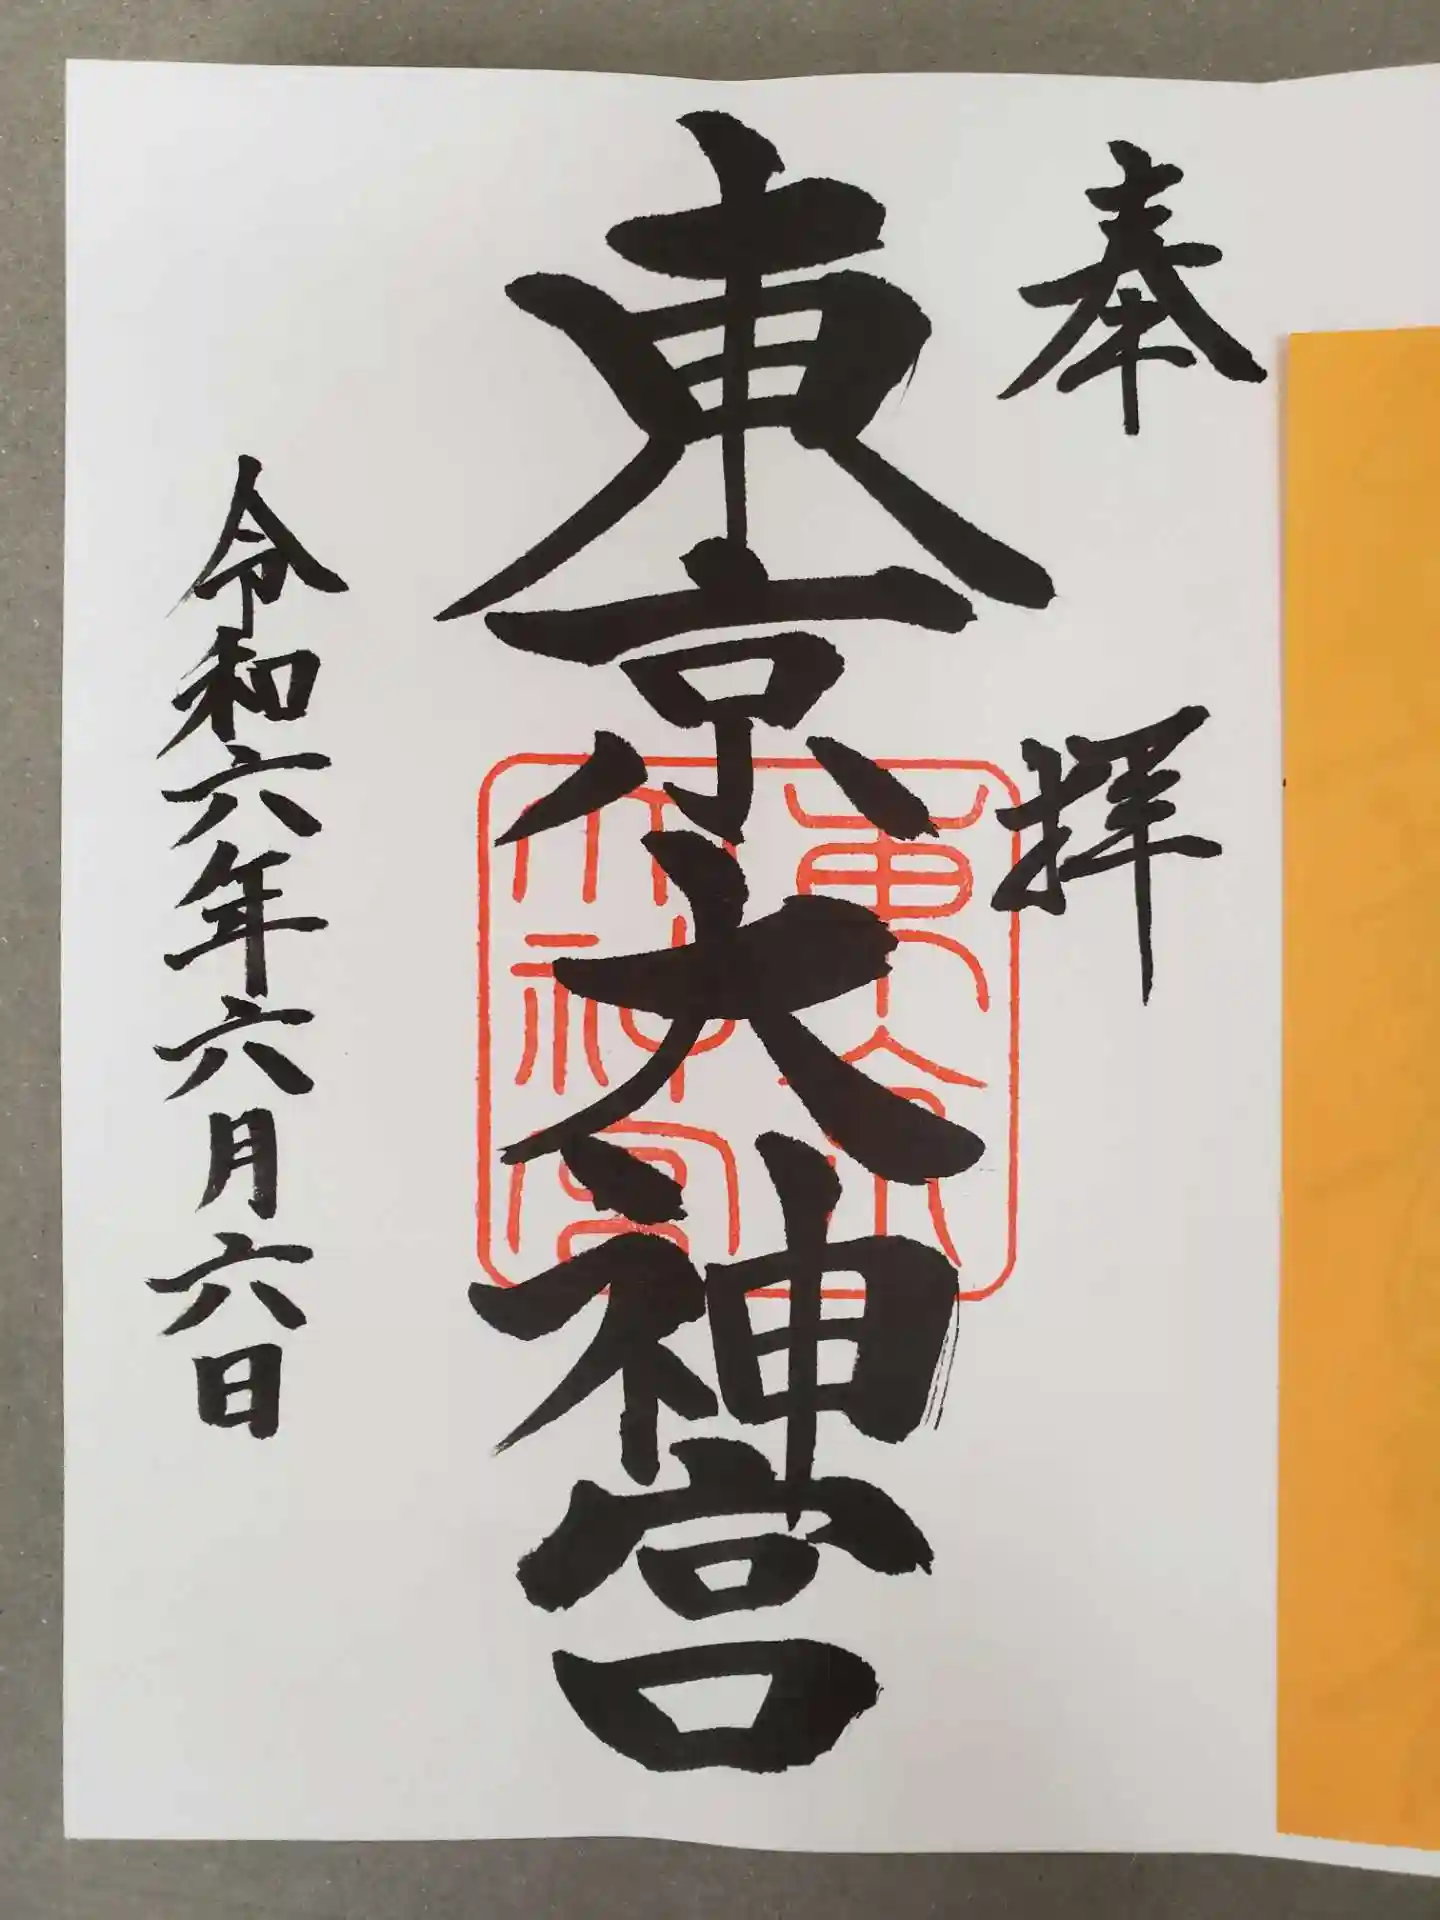 奉拝
東京大神宮
東京大神宮
令和六年六月六日